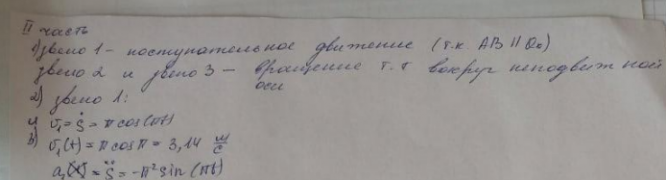 II часть
1) звено 1 - поступательное движение (т.к. AB || O₀)
звено 2 и звено 3 - вращение т.т вокруг неподвижной
оси
2) звено 1:
a) v₁ = ṡ = π cos(πt)
b) v₁(t) = π cos π = 3,14 м/с
a₁(t) = s̈ = -π² sin(πt)